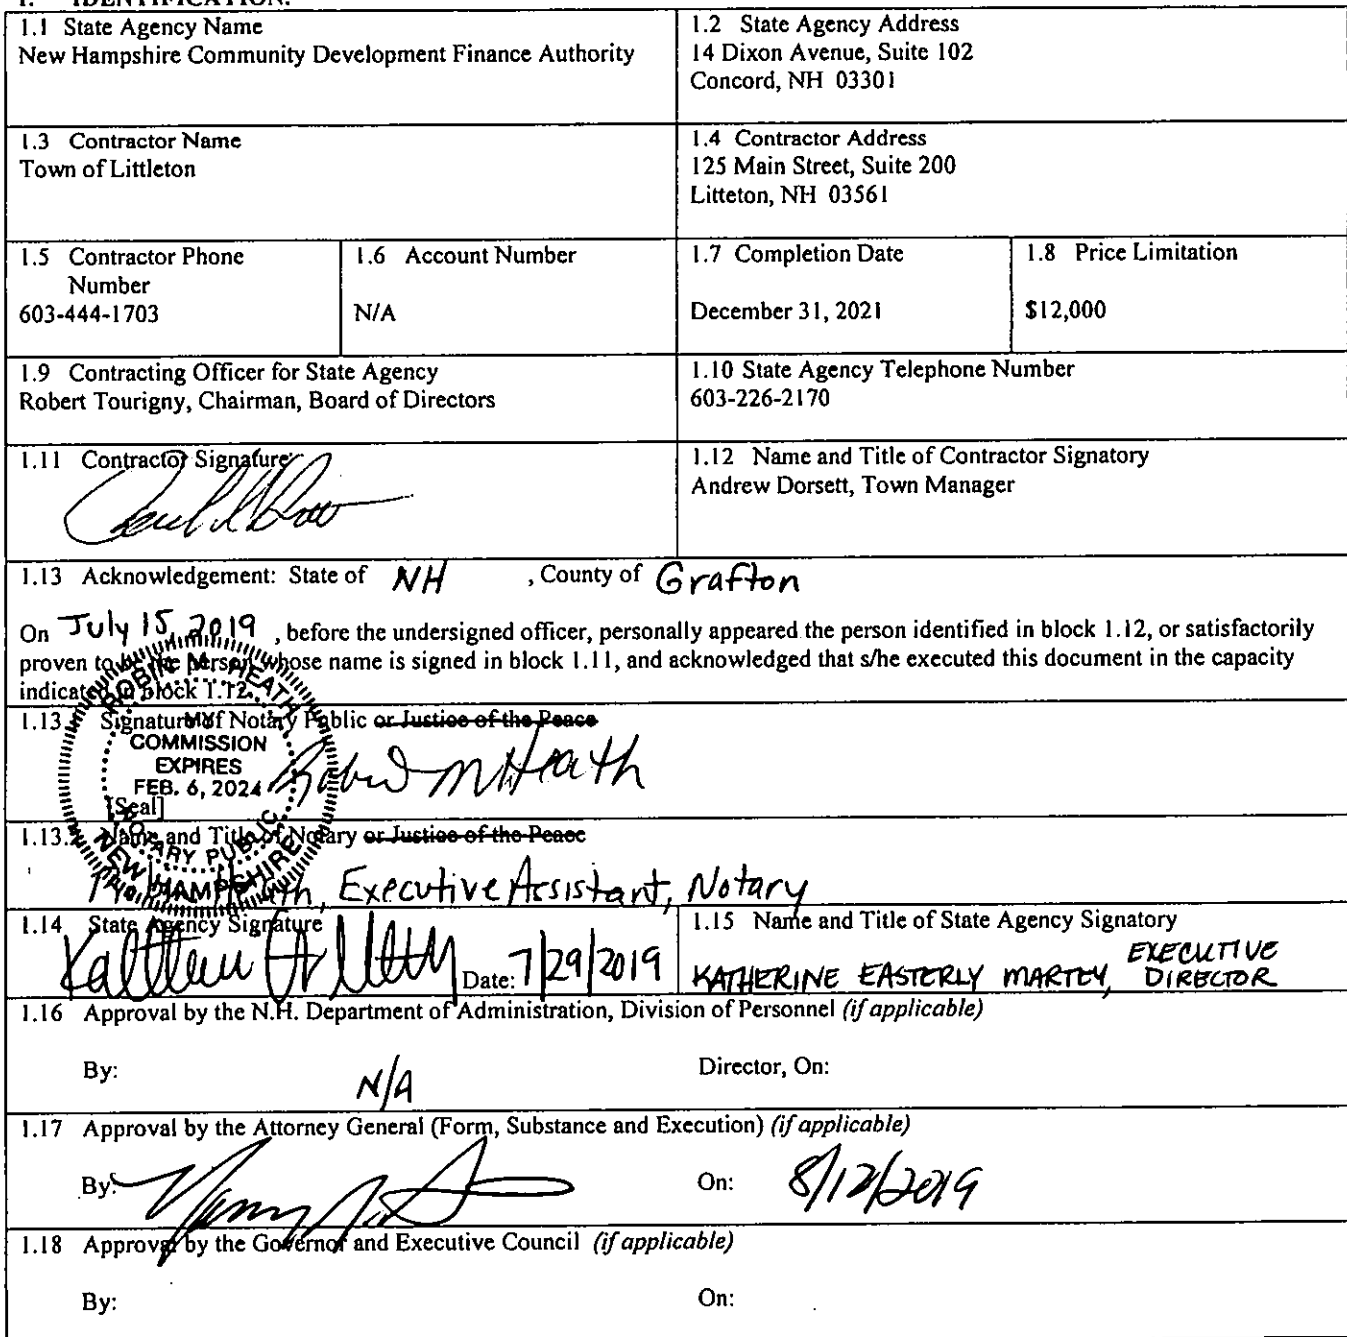 I. IDENTIFICATION.
1.1 State Agency Name
New Hampshire Community Development Finance Authority
1.2 State Agency Address
14 Dixon Avenue, Suite 102
Concord, NH 03301
1.3 Contractor Name
Town of Littleton
1.4 Contractor Address
125 Main Street, Suite 200
Litteton, NH 03561
1.5 Contractor Phone
Number
603-444-1703
1.6 Account Number
N/A
1.7 Completion Date
December 31, 2021
1.8 Price Limitation
$12,000
1.9 Contracting Officer for State Agency
Robert Tourigny, Chairman, Board of Directors
1.10 State Agency Telephone Number
603-226-2170
1.11 Contractor Signature
1.12 Name and Title of Contractor Signatory
Andrew Dorsett, Town Manager
1.13 Acknowledgement: State of NH , County of Grafton
On July 15, 2019 , before the undersigned officer, personally appeared the person identified in block 1.12, or satisfactorily
proven to be the person whose name is signed in block 1.11, and acknowledged that s/he executed this document in the capacity
indicated in block 1.12.
1.13. Signature of Notary Public or Justice of the Peace
ROBIN M. HEATH
MY
COMMISSION
EXPIRES
FEB. 6, 2024
NOTARY PUBLIC
NEW HAMPSHIRE
[Seal]
Robin M Heath
1.13.2 Name and Title of Notary or Justice of the Peace
Heath, Executive Assistant, Notary
1.14 State Agency Signature
Date: 7/29/2019
1.15 Name and Title of State Agency Signatory
KATHERINE EASTERLY MARTEY, EXECUTIVE
DIRECTOR
1.16 Approval by the N.H. Department of Administration, Division of Personnel (if applicable)
By: N/A Director, On:
1.17 Approval by the Attorney General (Form, Substance and Execution) (if applicable)
By: On: 8/12/2019
1.18 Approval by the Governor and Executive Council (if applicable)
By: On: